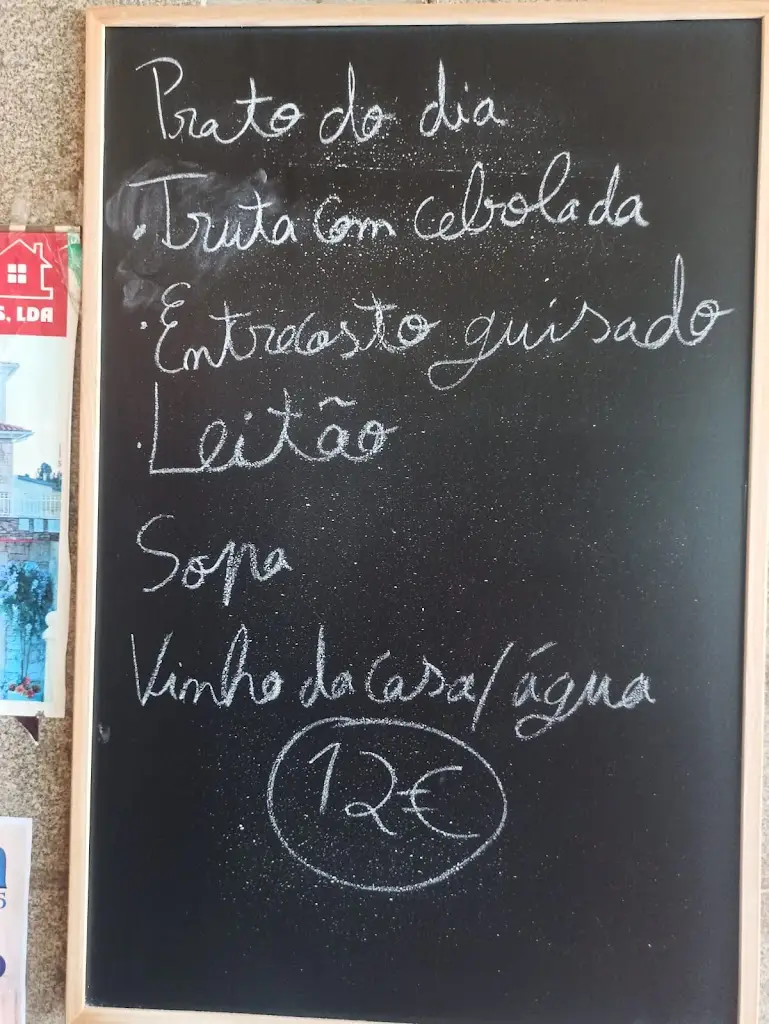 Prato do dia
. Truta com cebolada
. Entrecosto guisado
. Leitão
Sopa
Vinho da casa/água
12€
S, LDA